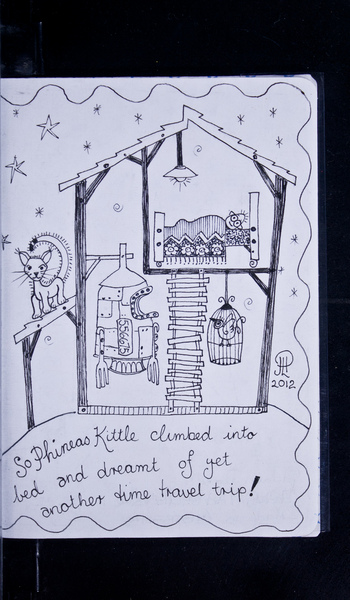 55663
JHL
2012
So Phineas Kittle climbed into
bed and dreamt of yet
another time travel trip!